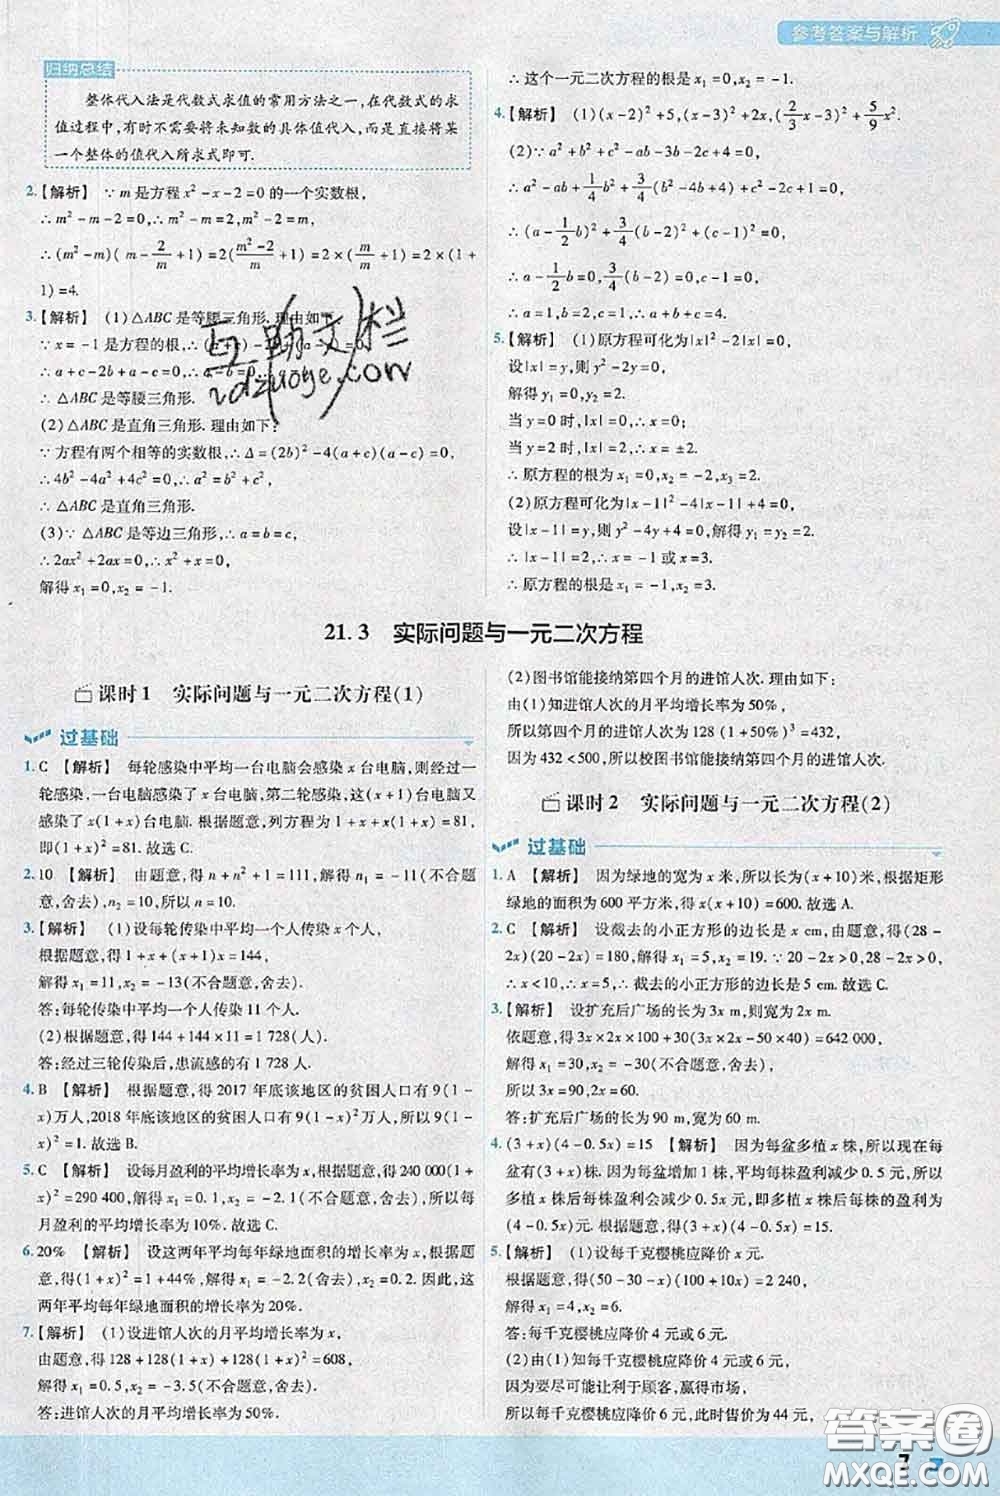 参考答案与解析
归纳总结
整体代入法是代数式求值的常用方法之一,在代数式的求
值过程中,有时不需要将未知数的具体值代入,而是直接将某
一个整体的值代入所求式即可.
2.【解析】 ∵m是方程x²-x-2=0的一个实数根,
∴m²-m-2=0,∴m²-2=m,
∴(m²-m)(m-2/m+1)=2((m²-2)/m+1)=2×(m/m+1)=2×(1+
1)=4.
3.【解析】 (1)△ABC是等腰三角形.理由如下:
∵x=-1是方程的根,∴(a+
∴a+c-2b+a-c=0,∴a-b=0,
∴△ABC是等腰三角形.
(2)△ABC是直角三角形.理由如下:
∵方程有两个相等的实数根,∴Δ=(2b)²-4(a+c)(a-c)=0,
∴4b²-4a²+4c²=0,∴a²=b²+c²,
∴△ABC是直角三角形.
(3)∵△ABC是等边三角形,∴a=b=c,
∴2ax²+2ax=0,∴x²+x=0,
解得x₁=0,x₂=-1.
∴这个一元二次方程的根是x₁=0,x₂=-1.
4.【解析】 (1)(x-2)²+5,(x-3)²+2x,(2/3x-3)²+5/9x².
(2)∵a²+b²+c²-ab-3b-2c+4=0,
∴a²-ab+1/4b²+3/4b²-3b+3+c²-2c+1=0,
∴(a-1/2b)²+3/4(b-2)²+(c-1)²=0,
∴a-1/2b=0,3/4(b-2)=0,c-1=0,
∴a=1,b=2,c=1,∴a+b+c=4.
5.【解析】 (1)原方程可化为|x|²-2|x|=0,
设|x|=y,则y²-2y=0.
解得y₁=0,y₂=2.
当y=0时,|x|=0,∴x=0;
当y=2时,|x|=2,∴x=±2.
∴原方程的根为x₁=0,x₂=-2,x₃=2.
(2)原方程可化为|x-1|²-4|x-1|+4=0.
设|x-1|=y,则y²-4y+4=0,解得y₁=y₂=2.
∴|x-1|=2,∴x=-1或x=3.
∴原方程的根是x₁=-1,x₂=3.
21.3 实际问题与一元二次方程
课时1 实际问题与一元二次方程(1)
过基础
1.C 【解析】 每轮感染中平均一台电脑会感染x台电脑,则经过
一轮感染,一台电脑感染了x台电脑,第二轮感染,这(1+x)台电脑又
感染了x(1+x)台电脑.根据题意,列方程为1+x+x(1+x)=81,
即(1+x)²=81.故选C.
2.10 【解析】 由题意,得n+n²+1=111,解得n₁=-11(不符合
题意,舍去),n₂=10,所以n=10.
3.【解析】 (1)设每轮传染中平均一个人传染x个人,
根据题意,得1+x+x(x+1)=144,
解得x₁=11,x₂=-13(不合题意,舍去).
答:每轮传染中平均一个人传染11个人.
(2)根据题意,得144+144×11=1 728(人).
答:经过三轮传染后,患流感的有1 728人.
4.B 【解析】 根据题意,得2017年底该地区的贫困人口有9(1-
x)万人,2018年底该地区的贫困人口有9(1-x)²万人,所以9(1-
x)²=1.故选B.
5.C 【解析】 设每月盈利的平均增长率为x,由题意,得240 000(1+
x)²=290 400,解得x₁=0.1,x₂=-2.1(不合题意,舍去),所以每
月盈利的平均增长率为10%.故选C.
6.20% 【解析】 设这两年平均每年绿地面积的增长率为x,由题
意,得(1+x)²=1+44%,解得x₁=-2.2(舍去),x₂=0.2.因此,这
两年平均每年绿地面积的增长率为20%.
7.【解析】 (1)设进馆人次的月平均增长率为x,
由题意,得128+128(1+x)+128(1+x)²=608,
解得x₁=0.5,x₂=-3.5(不合题意,舍去).
答:进馆人次的月平均增长率为50%.
(2)图书馆能接纳第四个月的进馆人次.理由如下:
由(1)知进馆人次的月平均增长率为50%,
所以第四个月的进馆人次为128(1+50%)³=432,
因为432<500,所以校图书馆能接纳第四个月的进馆人次.
课时2 实际问题与一元二次方程(2)
过基础
1.A 【解析】 因为绿地的宽为x米,所以长为(x+10)米.根据矩形
绿地的面积为600平方米,得x(x+10)=600.故选A.
2.C 【解析】 设截去的小正方形的边长是x cm,由题意,得(28-
2x)(20-2x)=180,解得x₁=5,x₂=19.∵20-2x>0,28-2x>0,
∴x<10,∴x=5,∴截去的小正方形的边长是5 cm.故选C.
3.【解析】 设扩充后广场的长为3x m,则宽为2x m.
依题意,得3x×2x×100+30(3x×2x-50×40)=642 000,
解得x₁=30,x₂=-30(不合题意,舍去).
所以3x=90,2x=60.
答:扩充后广场的长为90 m,宽为60 m.
4.(3+x)(4-0.5x)=15 【解析】 因为每盆多植x株,所以现在每
盆有(3+x)株.因为每盆增加1株,平均每株盈利减少0.5元,所以
多植x株平均每株盈利会减少0.5x元,即多植x株后每株的盈利为
(4-0.5x)元.根据题意,得(3+x)(4-0.5x)=15.
5.【解析】 (1)设每千克樱桃应降价x元.
根据题意,得(50-30-x)(100+10x)=2 240,
解得x₁=4,x₂=6.
答:每千克樱桃应降价4元或6元.
(2)由(1)知每千克樱桃应降价4元或6元,
因为要尽可能让利于顾客,赢得市场,
所以每千克樱桃应降价6元,此时售价为44元.
互助文栏
答案圈
MXQE.COM
7